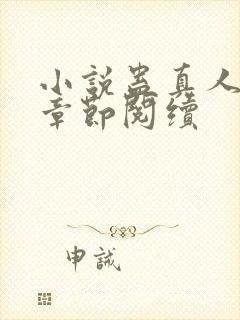 小說蠱真人
章節閱續
申誡